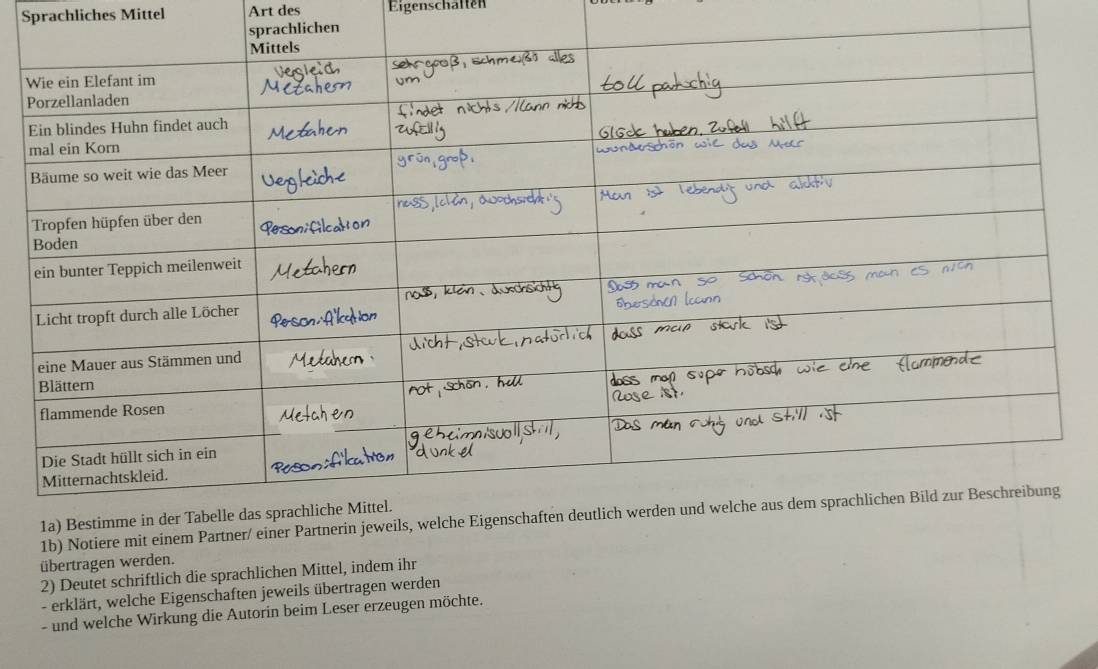 Sprachliches Mittel
Art des
sprachlichen
Mittels
Eigenschaften
Wie ein Elefant im
Porzellanladen
Vergleich
Metahern
sehr groß, schmeißt alles
um
toll patschig
Ein blindes Huhn findet auch
mal ein Korn
Metahern
findet nichts / kann nichts
zufällig
Glück haben. Zufall hilft
Bäume so weit wie das Meer
Vergleiche
grün, groß,
wunderschön wie das Meer
Tropfen hüpfen über den
Boden
Personifikation
nass, klein, durchsichtig
Man ist lebendig und aktiv
ein bunter Teppich meilenweit
Metahern
Licht tropft durch alle Löcher
Personifikation
nass, klein, durchsichtig
Dass man so schön ist, dass man es nich
übersehen kann
eine Mauer aus Stämmen und
Blättern
Metahern.
dicht, stark, natürlich
dass man stark ist
flammende Rosen
Metahern
rot, schön, hell
dass man super hübsch wie eine flammende
Rose ist.
Die Stadt hüllt sich in ein
Mitternachtskleid.
Personifikation
geheimnisvoll, still,
dunkel
Das man ruhig und still ist
1a) Bestimme in der Tabelle das sprachliche Mittel.
1b) Notiere mit einem Partner/ einer Partnerin jeweils, welche Eigenschaften deutlich werden und welche aus dem sprachlichen Bild zur Beschreibung
übertragen werden.
2) Deutet schriftlich die sprachlichen Mittel, indem ihr
- erklärt, welche Eigenschaften jeweils übertragen werden
- und welche Wirkung die Autorin beim Leser erzeugen möchte.